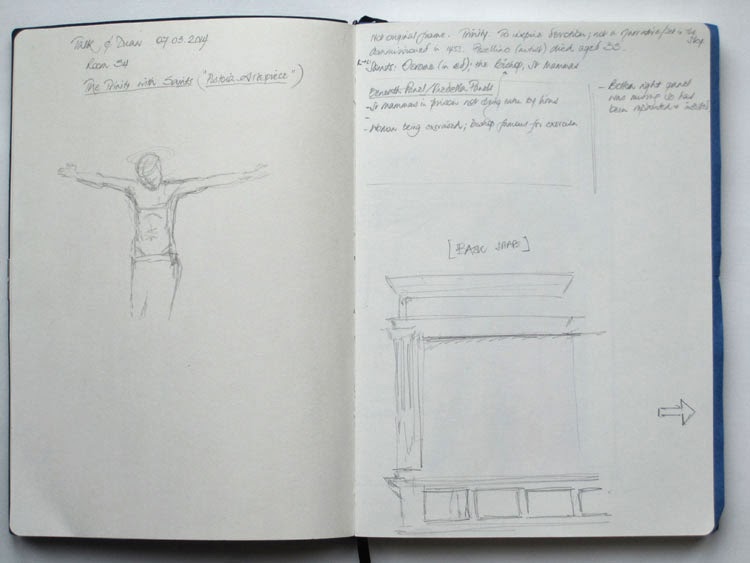 Talk & Draw 07.03.2014
Room 54
The Trinity with Saints ("Pistoia Altarpiece")
Not original frame. Trinity. To inspire devotion; not a narrative/set in the
Sky
Commissioned in 1455. Pesellino (artist) died aged 35.
Saints: (in red); the Bishop, St Mammas
Beneath Panel/Predella Panels
- St Mammas in prison not dying by lions
- Woman being exorcised; Bishop famous for exorcism
- Bottom right panel
was missing so had
been repainted &
[BASIC SHAPE]